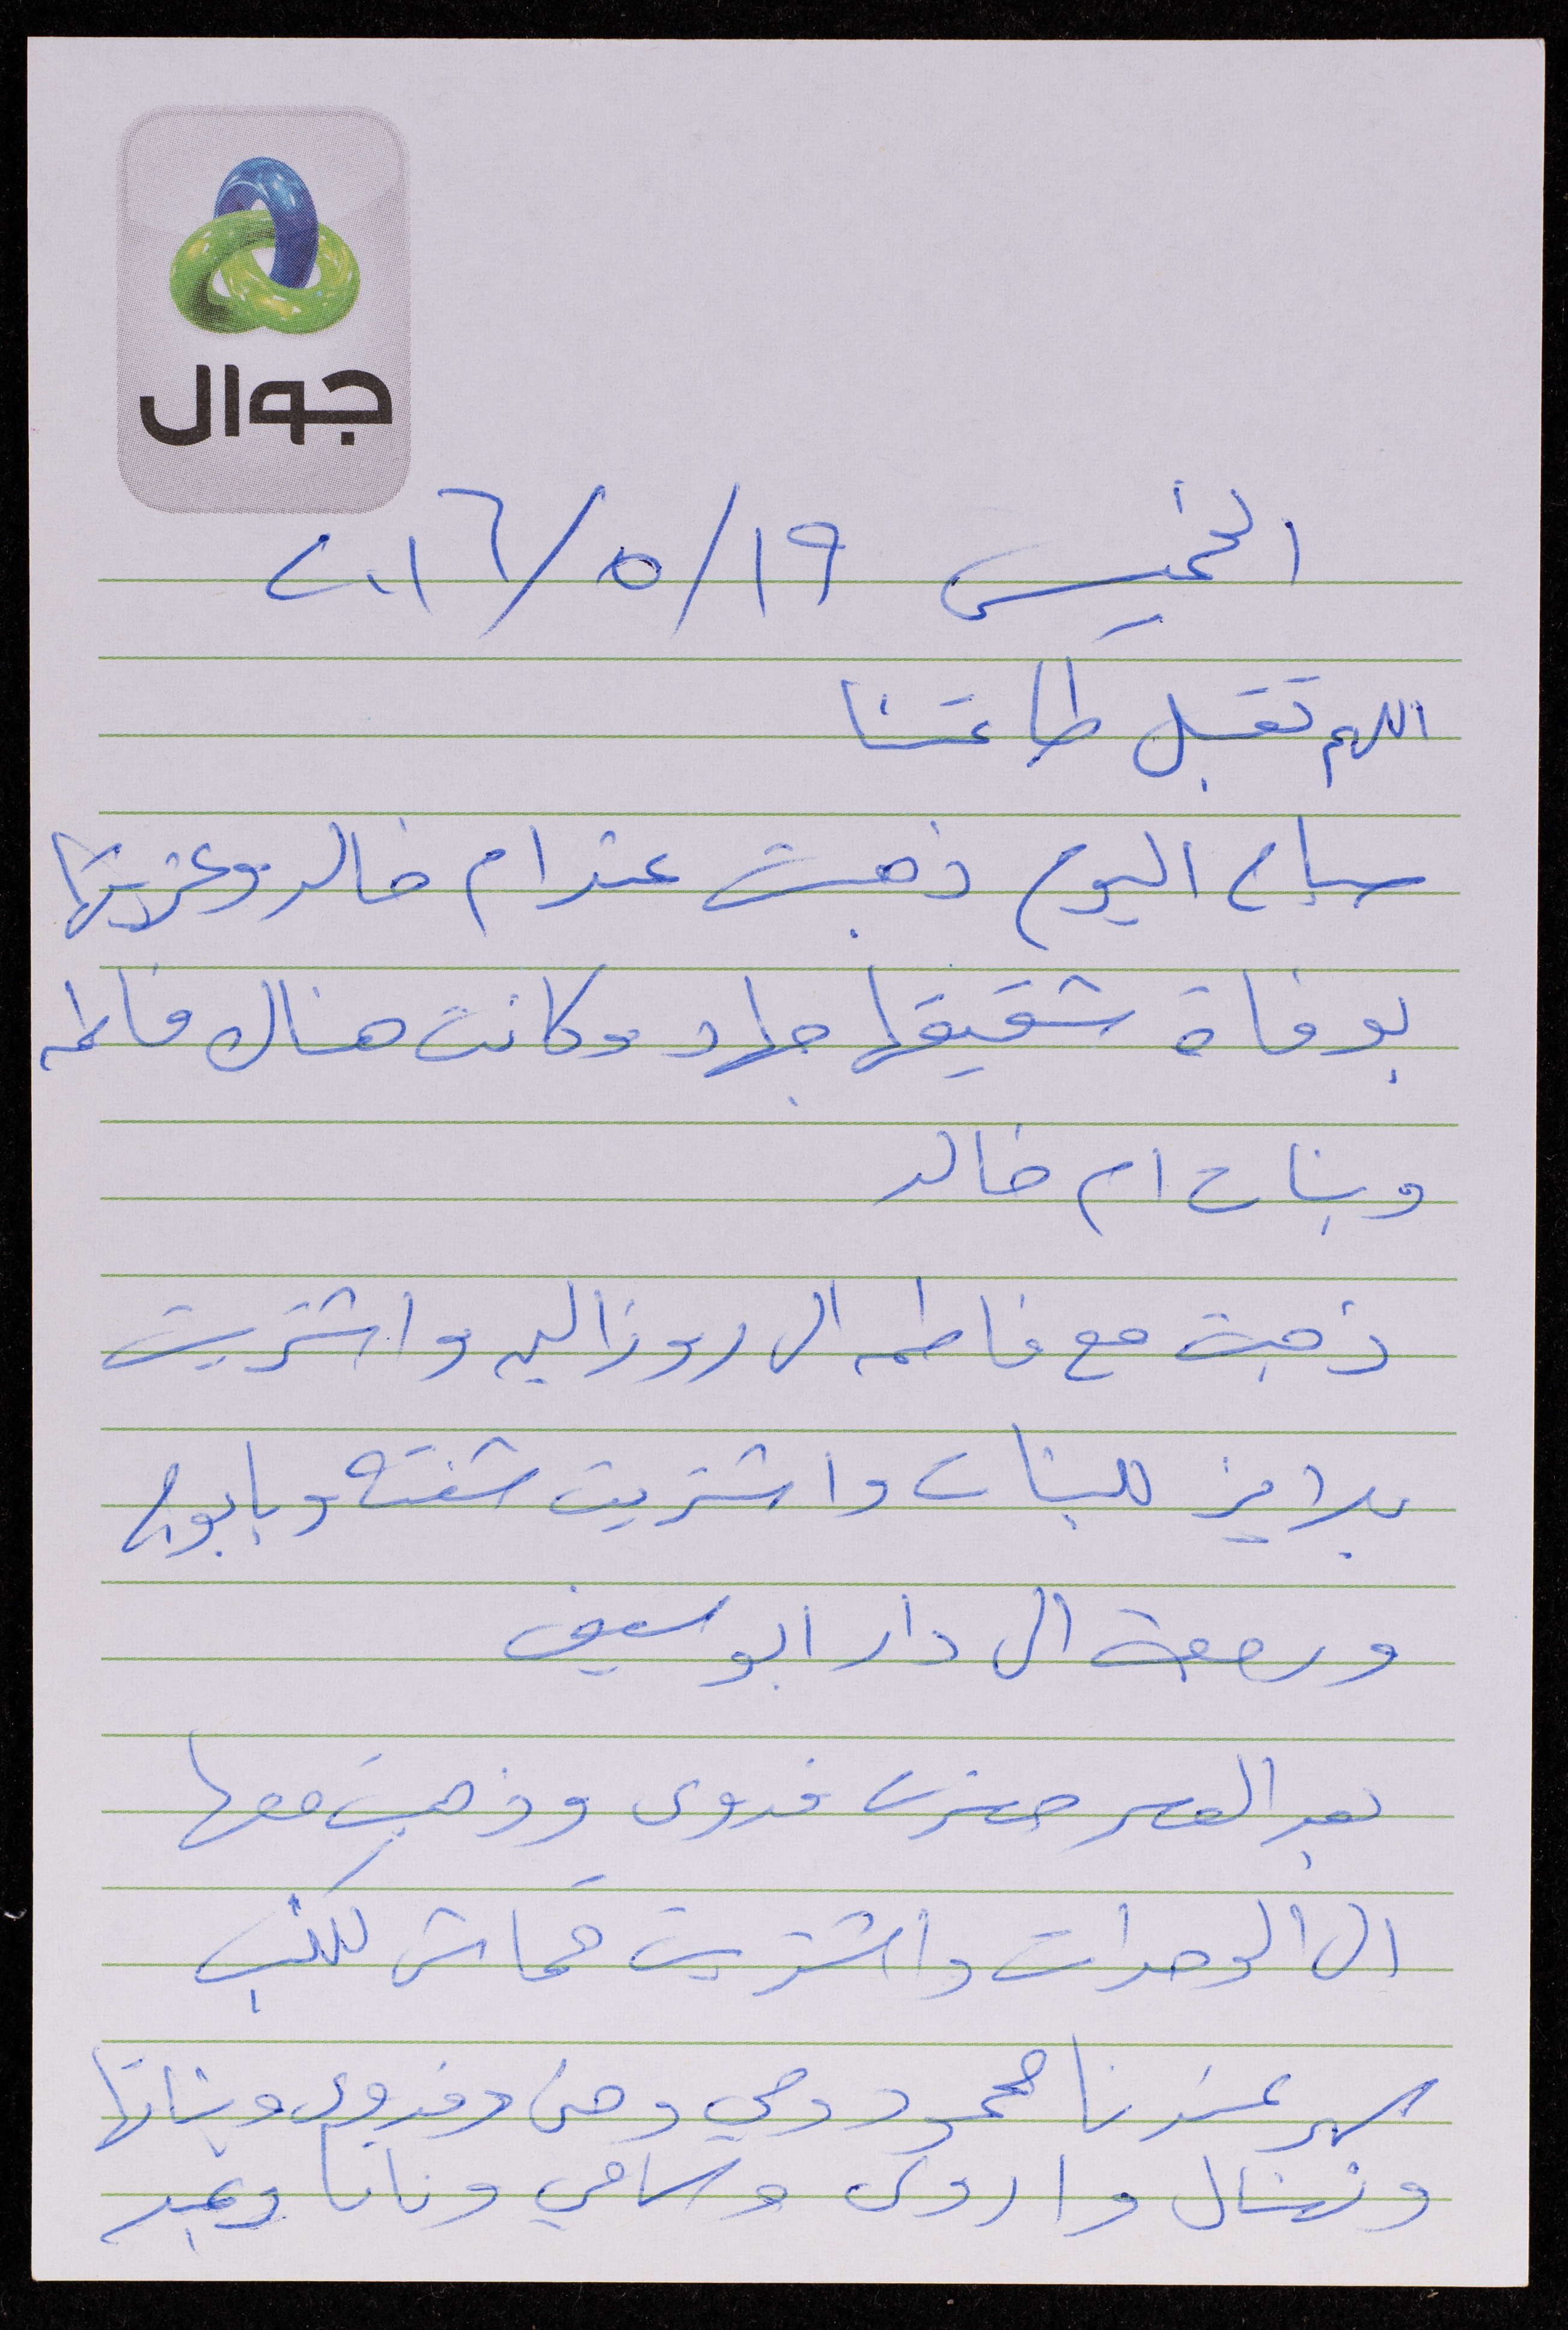 جوال
الخميس ١٩/٥/٢٠١٦
اللهم تقبل طاعتنا
صباح اليوم ذهبت عند ام خالد وعزيتها
بوفاة شقيقها جهاد وكانت هناك فاطمه
وبنات ام خالد
ذهبت مع فاطمه الى روزاليه واشتريت
بلايز للبنات واشتريت شنته وبابوج
ورجعت الى دار ابو سيف
بعد العصر حضرت فدوى وذهبت معها
الى الوحدات واشتريت قماش للكنب
سهر عندنا محمود ومي وفدوى وبناتها
ونهال واروى وسامي ونانا